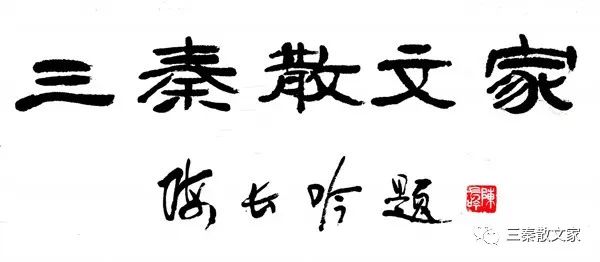 三秦散文家
陈长吟题
三秦散文家